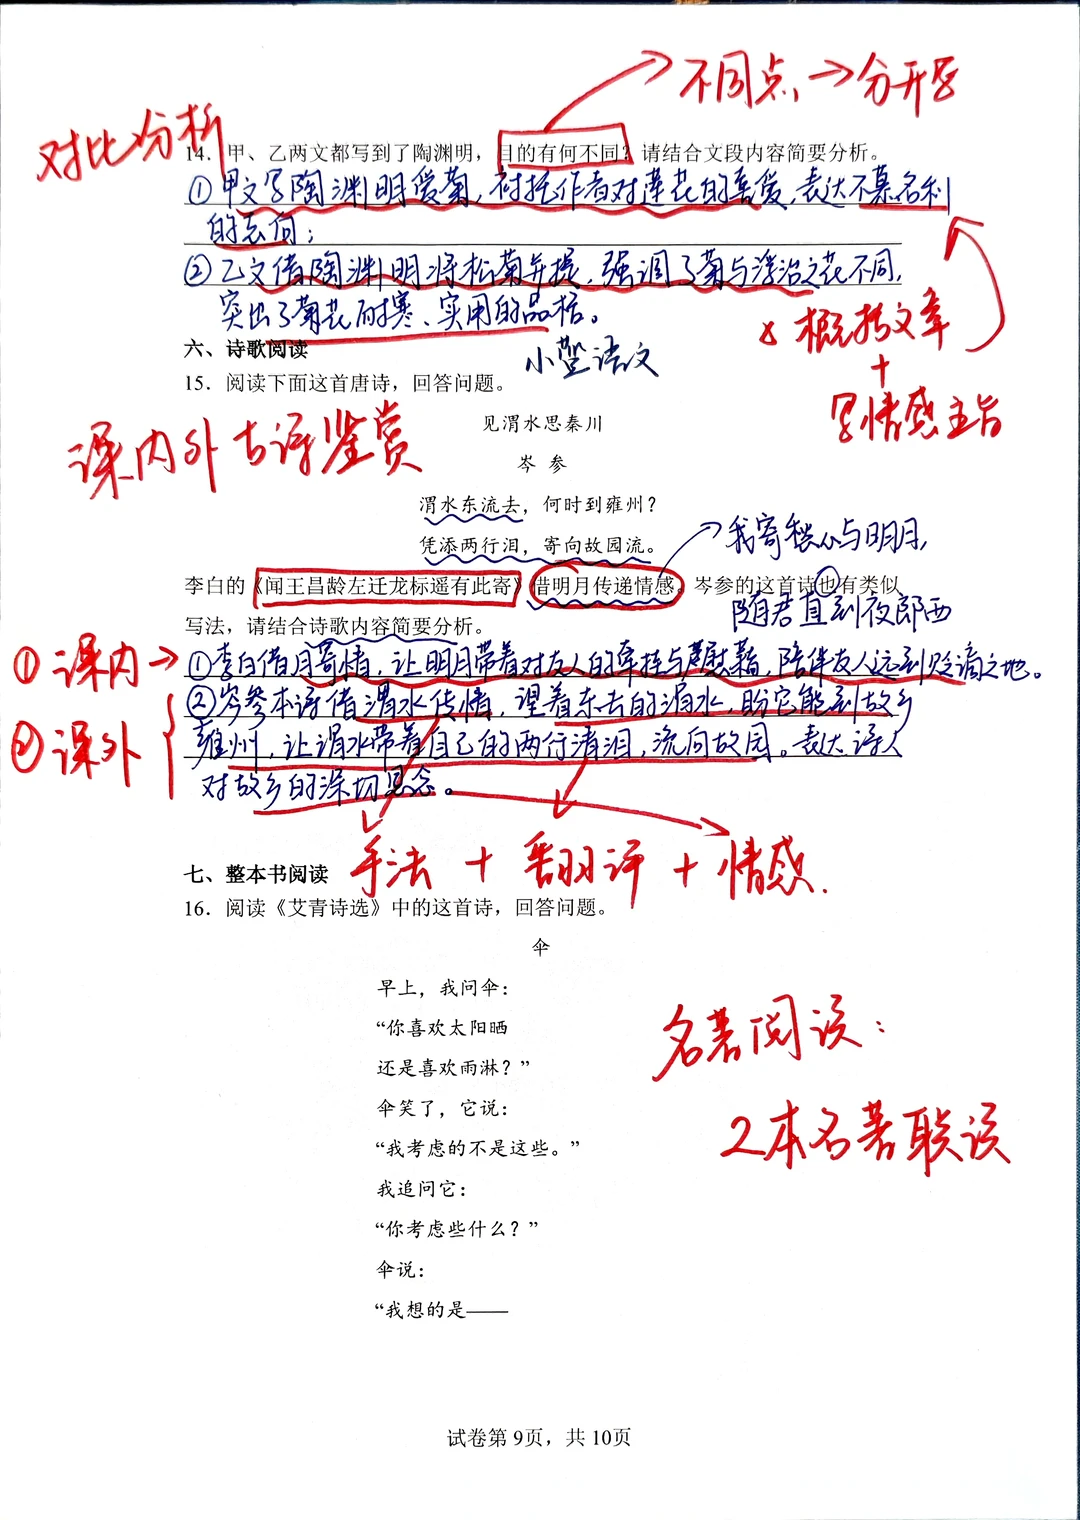 不同点→分开写
对比分析
14. 甲、乙两文都写到了陶渊明，目的有何不同？请结合文段内容简要分析。
①甲文写陶渊明爱菊，衬托作者对莲花的喜爱，表达不慕名利
的志向；
②乙文借陶渊明将松菊并提，强调了菊与浮冶之花不同，
突出了菊花耐寒、实用的品格。
概括文章
+
写情感主旨
六、诗歌阅读
小莹语文
15. 阅读下面这首唐诗，回答问题。
课内外古诗鉴赏
见渭水思秦川
岑 参
渭水东流去，何时到雍州？
凭添两行泪，寄向故园流。
我寄愁心与明月，
随君直到夜郎西
李白的《闻王昌龄左迁龙标遥有此寄》借明月传递情感。岑参的这首诗也有类似
写法，请结合诗歌内容简要分析。
①课内→
①李白借月寄情，让明月带着对友人的牵挂与慰藉，陪伴友人远到贬谪之地。
②课外
②岑参本诗借渭水传情，望着东去的渭水，盼它能到故乡
雍州，让渭水带着自己的两行清泪，流向故园。表达诗人
对故乡的深切思念。
手法 + 翻译 + 情感.
七、整本书阅读
16. 阅读《艾青诗选》中的这首诗，回答问题。
伞
早上，我问伞：
“你喜欢太阳晒
还是喜欢雨淋？”
伞笑了，它说：
“我考虑的不是这些。”
我追问它：
“你考虑些什么？”
伞说：
“我想的是——
名著阅读：
2本名著联读
试卷第 9页，共 10页